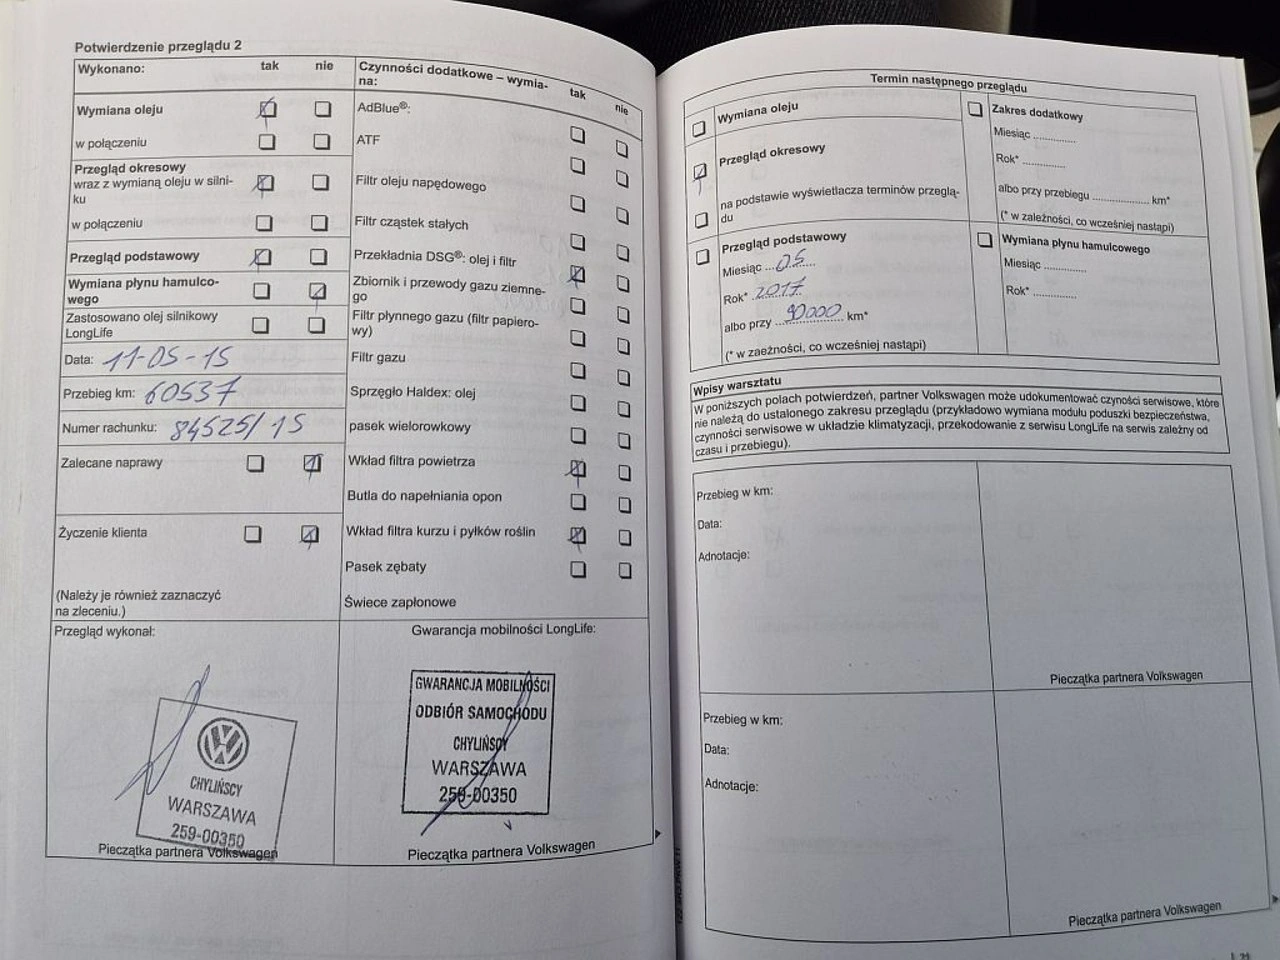 Potwierdzenie przeglądu 2
Wykonano: tak nie
Wymiana oleju
w połączeniu
Przegląd okresowy
wraz z wymianą oleju w silni-
ku
w połączeniu
Przegląd podstawowy
Wymiana płynu hamulco-
wego
Zastosowano olej silnikowy
LongLife
Data: 11-05-15
Przebieg km: 60537
Numer rachunku: 84525/15
Zalecane naprawy
Życzenie klienta
(Należy je również zaznaczyć
na zleceniu.)
Przegląd wykonał:
CHYLIŃSCY
WARSZAWA
259-00350
Pieczątka partnera Volkswagen
Czynności dodatkowe – wymia-
na: tak nie
AdBlue®:
ATF
Filtr oleju napędowego
Filtr cząstek stałych
Przekładnia DSG®: olej i filtr
Zbiornik i przewody gazu ziemne-
go
Filtr płynnego gazu (filtr papiero-
wy)
Filtr gazu
Sprzęgło Haldex: olej
pasek wielorowkowy
Wkład filtra powietrza
Butla do napełniania opon
Wkład filtra kurzu i pyłków roślin
Pasek zębaty
Świece zapłonowe
Gwarancja mobilności LongLife:
GWARANCJA MOBILNOŚCI
ODBIÓR SAMOCHODU
CHYLIŃSCY
WARSZAWA
259-00350
Pieczątka partnera Volkswagen
Termin następnego przeglądu
Wymiana oleju
Przegląd okresowy
na podstawie wyświetlacza terminów przeglą-
du
Przegląd podstawowy
Miesiąc ...05......
Rok* .2017.
albo przy ...90000... km*
(* w zaeżności, co wcześniej nastąpi)
Zakres dodatkowy
Miesiąc .............
Rok* .............
albo przy przebiegu ................. km*
(* w zależności, co wcześniej nastąpi)
Wymiana płynu hamulcowego
Miesiąc .............
Rok* .............
Wpisy warsztatu
W poniższych polach potwierdzeń, partner Volkswagen może udokumentować czyności serwisowe, które
nie należą do ustalonego zakresu przeglądu (przykładowo wymiana modułu poduszki bezpieczeństwa,
czynności serwisowe w układzie klimatyzacji, przekodowanie z serwisu LongLife na serwis zależny od
czasu i przebiegu).
Przebieg w km:
Data:
Adnotacje:
Pieczątka partnera Volkswagen
Przebieg w km:
Data:
Adnotacje:
Pieczątka partnera Volkswagen